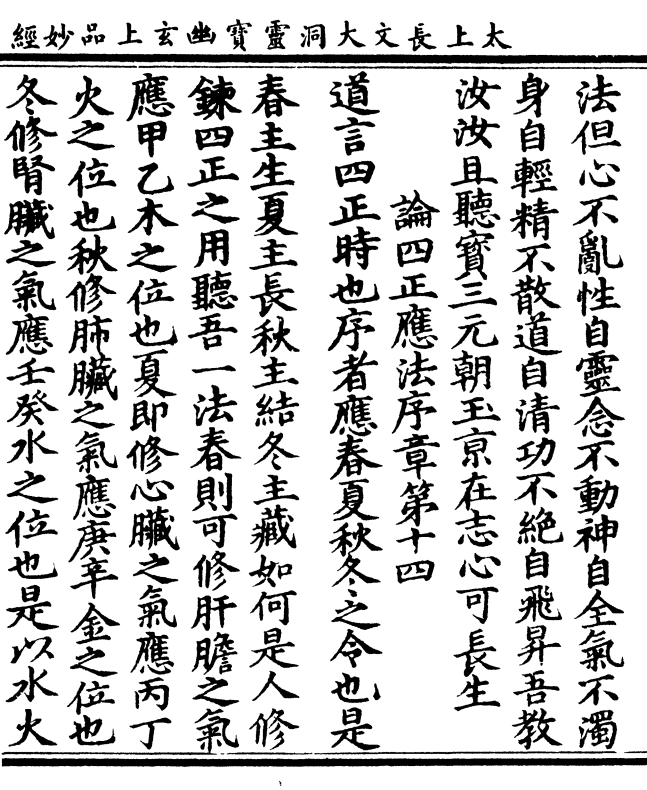 太上長文大洞靈寶幽玄上品妙經
法但心不亂性自靈念不動神自全氣不濁
身自輕精不散道自清功不絕自飛昇吾教
汝汝且聽寶三元朝玉京在志心可長生
論四正應法序章第十四
道言四正時也序者應春夏秋冬之令也是
春主生夏主長秋主結冬主藏如何是人修
鍊四正之用聽吾一法春則可修肝膽之氣
應甲乙木之位也夏即修心臟之氣應丙丁
火之位也秋修肺臟之氣應庚辛金之位也
冬修腎臟之氣應壬癸水之位也是以水火